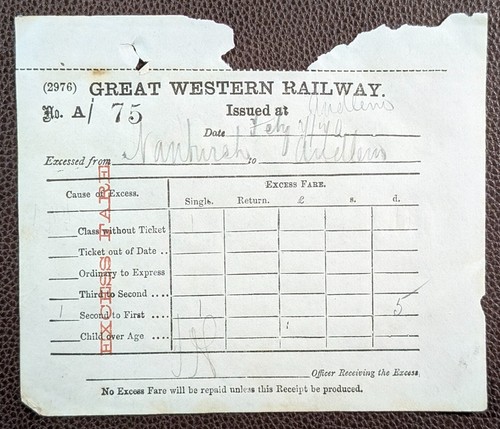 (2976) GREAT WESTERN RAILWAY.
No. A/ 75 Issued at
Date July
Excessed from to
Cause of Excess. EXCESS FARE.
Single. Return. £ s. d.
Class without Ticket
Ticket out of Date ..
Ordinary to Express
Third to Second ....
1 Second to First .... 1 5
Child over Age ....
EXCESS FARE
Officer Receiving the Excess.
No Excess Fare will be repaid unless this Receipt be produced.